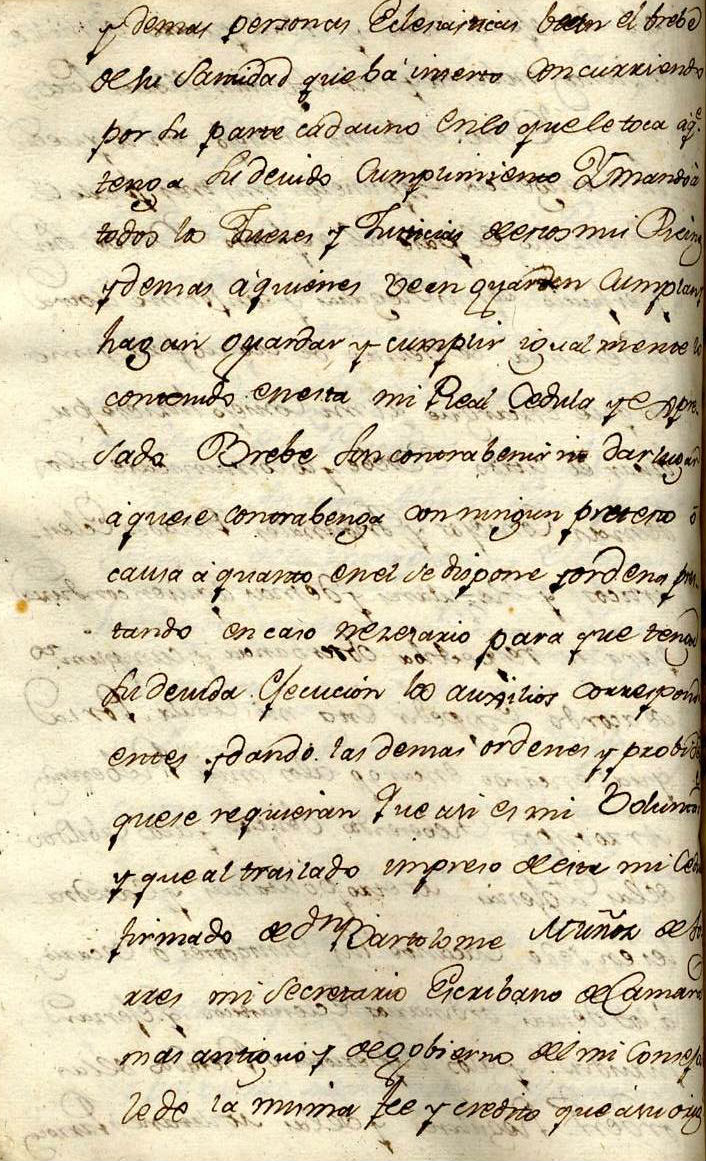 y demas personas Eclesiasticas bean el brebe
de su Santidad que bá inserto concurriendo
por su parte cada uno en lo que le toca á q.e
tenga su devido Cumplimiento Y mando á
todos los Juezes y Justicias de estos mis Rein
y demas á quienes be en guarden Cumplan y
hagan guardar y cumplir igualmente lo
contenido en esta mi Real Cedula y expre-
sado Brebe sin contrabenir ni dar lugar
á que se contrabenga con ningun pretesto ó
causa á quanto en el se dispone y ordena pres-
tando en caso Nezesario para que tenga
su devida Ejecucion los auxilios correspond
entes y dando las demas ordenes y probid
que se requieran Que asi es mi Volunta
y que al traslado impreso de esta mi Cedu
firmado de dn Bartolome Muñoz de To
rres mi Secretario Escribano de Camara
mas antiguo y de gobierno del mi Consejo
se de la misma fee y credito que á su orig